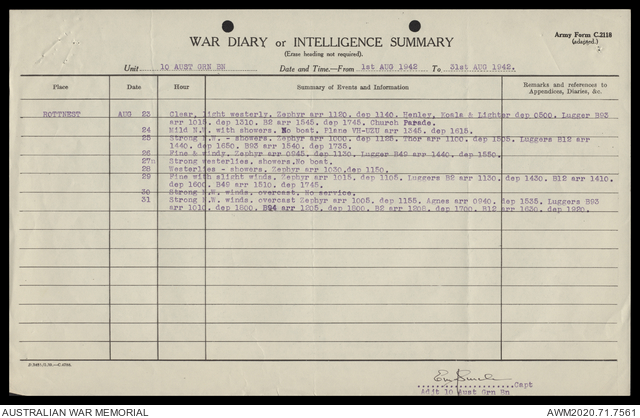 Army Form C.2118
(adapted.)
WAR DIARY or INTELLIGENCE SUMMARY
(Erase heading not required).
Unit 10 AUST GRN BN Date and Time.—From 1st AUG 1942 To 31st AUG 1942.
Place Date Hour Summary of Events and Information Remarks and references to Appendices, Diaries, &c.
ROTTNEST AUG 23 Clear, light westerly. Zephyr arr 1120, dep 1140. Henley, Koala & Lighter dep 0500. Lugger B93
arr 1015, dep 1310. B2 arr 1545, dep 1745. Church Parade.
24 Mild N.W. with showers. No boat. Plane VH-UZU arr 1345, dep 1615.
25 Strong N.W. - showers. Zephyr arr 1000, dep 1125. Thor arr 1100, dep 1505. Luggers B12 arr
1440, dep 1650. B93 arr 1540, dep 1735.
26 Fine & winds. Zephyr arr 0945, dep 1130. Lugger B49 arr 1440, dep 1550.
27 Strong westerlies, showers. No boat.
28 Westerlies - showers. Zephyr arr 1030, dep 1150.
29 Fine with slight winds. Zephyr arr 1015, dep 1105. Luggers B2 arr 1130, dep 1430. B12 arr 1410,
dep 1600. B49 arr 1510, dep 1745.
30 Strong N.W. winds, overcast. No service.
31 Strong N.W. winds, overcast Zephyr arr 1005, dep 1155. Agnes arr 0940, dep 1535. Luggers B93
arr 1010, dep 1800. B94 arr 1205, dep 1800. B2 arr 1208, dep 1700. B12 arr 1630, dep 1920.
Capt
Adjt 10 Aust Grn Bn
AUSTRALIAN WAR MEMORIAL AWM2020.71.7561